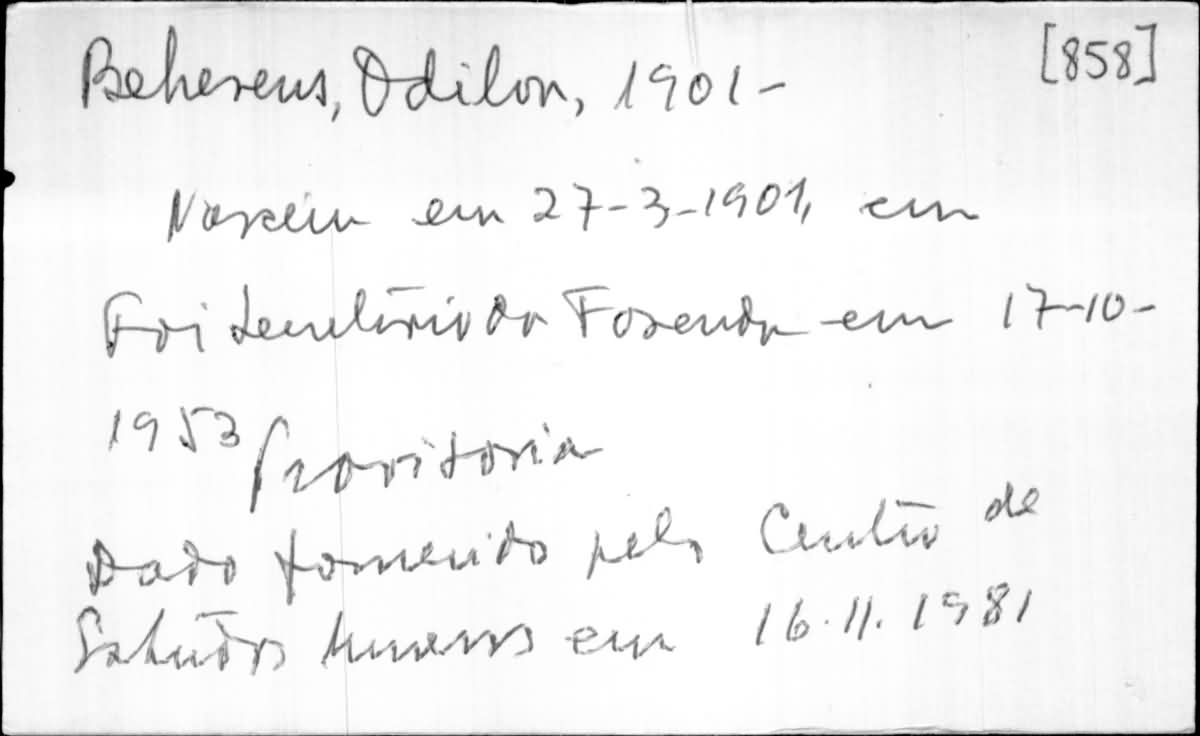 [858]
Beherens, Odilon, 1901-
Nasceu em 27-3-1901, em
Foi Secretário da Fazenda em 17-10-
1953 Provisória
Dado fornecido pelo Centro de
Estudos Mineiros em 16.11.1981